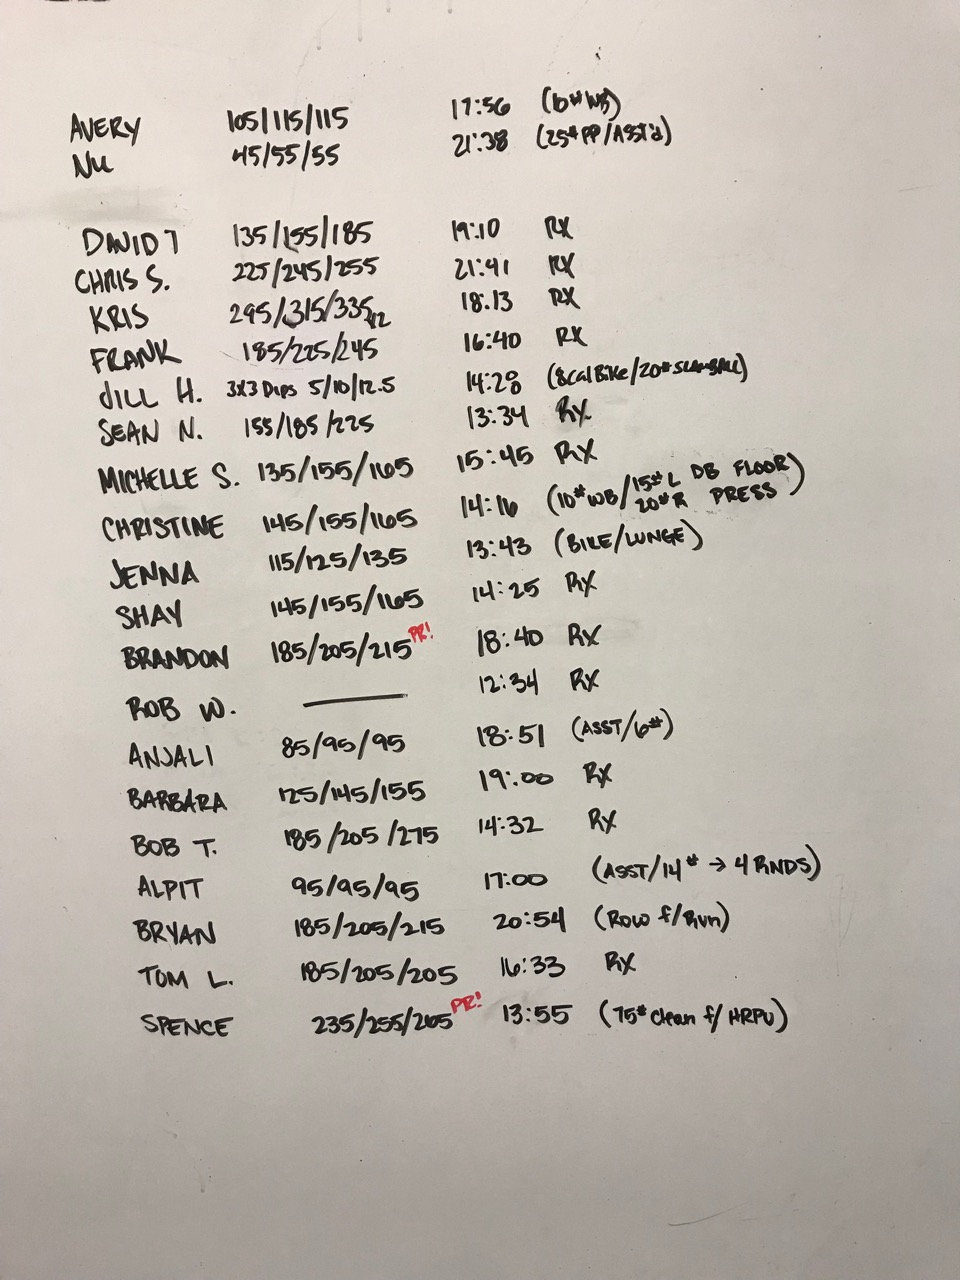 AVERY 105/115/115 17:56 (10# WB)
NU 45/55/55 21:38 (25# PP/ASST'd)
DAVID T 135/155/185 19:10 RX
CHRIS S. 225/245/255 21:41 RX
KRIS 295/315/335 x2 18:13 RX
FRANK 185/225/245 16:40 RX
JILL H. 3x3 Dips 5/10/12.5 14:28 (8 Cal Bike/20# SLAMBALL)
SEAN N. 155/185/225 13:34 RX
MICHELLE S. 135/155/165 15:45 RX
CHRISTINE 145/155/165 14:16 (10# WB/15# L 20# R DB FLOOR PRESS)
JENNA 115/125/135 13:43 (BIKE/LUNGE)
SHAY 145/155/165 14:25 RX
BRANDON 185/205/215 PR! 18:40 RX
ROB W. — 12:34 RX
ANJALI 85/95/95 18:51 (ASST/6#)
BARBARA 125/145/155 19:00 RX
BOB T. 185/205/275 14:32 RX
ALPIT 95/95/95 17:00 (ASST/14# → 4 RNDS)
BRYAN 185/205/215 20:54 (ROW f/RUN)
TOM L. 185/205/205 16:33 RX
SPENCE 235/255/265 PR! 13:55 (75# Clean f/HRPU)